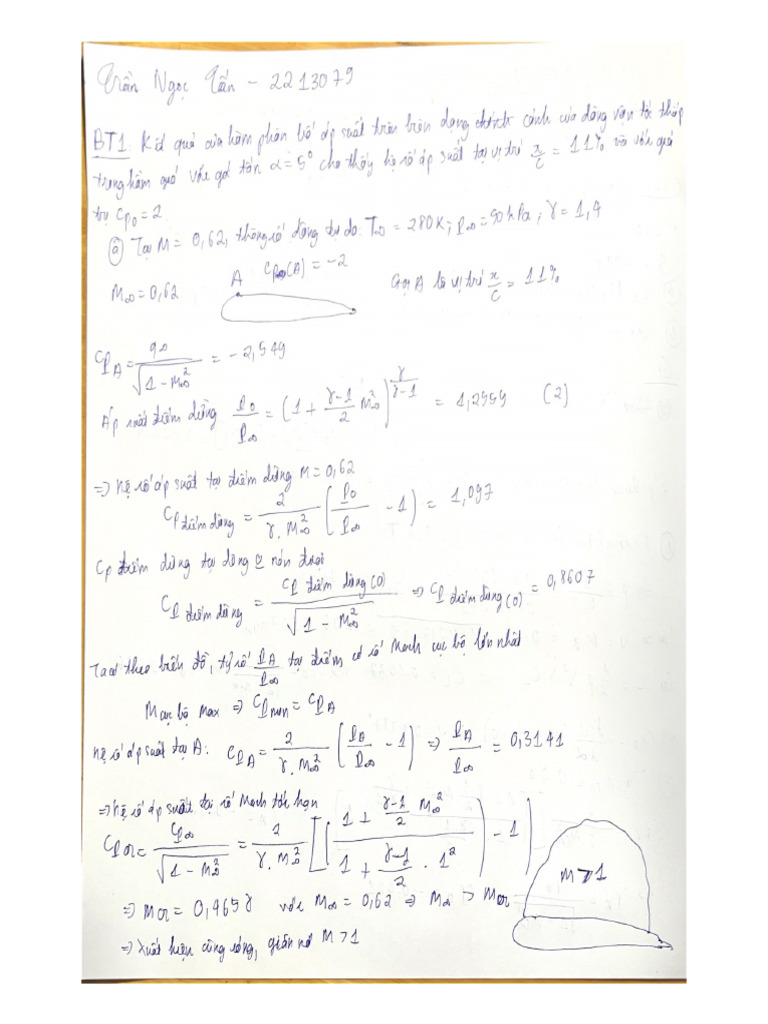 Trần Ngọc Tấn - 2213079
BT1: Kết quả của hầm phân bố áp suất trên biên dạng cánh của dòng vận tốc thấp
trong hầm quá với góc tấn α = 5° cho thấy hệ số áp suất tại vị trí x/c = 11% và với giá
trị Cp0 = 2
(a) Tại M = 0,62, thông số dòng tự do: T∞ = 280K; P∞ = 90kPa; γ = 1,4
M∞ = 0,62 A Cp∞(A) = -2 Gọi A là vị trí x/c = 11%
CPA = q∞ / √(1 - M∞²) = -2,549
Áp suất điểm dừng P0/P∞ = (1 + (γ-1)/2 M∞²)^(γ/(γ-1)) = 1,2959 (2)
=> hệ số áp suất tại điểm dừng M = 0,62
CP điểm dừng = 2/(γ.M∞²) [P0/P∞ - 1] = 1,097
Cp điểm dừng tại dòng o nén được
CP điểm dừng = CP điểm dừng(0) / √(1 - M∞²) => CP điểm dừng(0) = 0,8607
Ta có theo biến đồ, tỷ số PA/P∞ tại điểm có số Mach cục bộ lớn nhất
M cục bộ max => CPmin = CPA
hệ số áp suất tại A: CPA = 2/(γ.M∞²) [PA/P∞ - 1] => PA/P∞ = 0,3141
=> hệ số áp suất tại số Mach tới hạn
CPcr = CP∞ / √(1 - M∞²) = 2/(γ.M∞²) [(1 + (γ-1)/2 M∞²)/(1 + (γ-1)/2 . 1²) - 1]
M > 1
=> Mcr = 0,4658 với M∞ = 0,62 => M∞ > Mcr
=> Xuất hiện cùng sóng, giãn nở M > 1